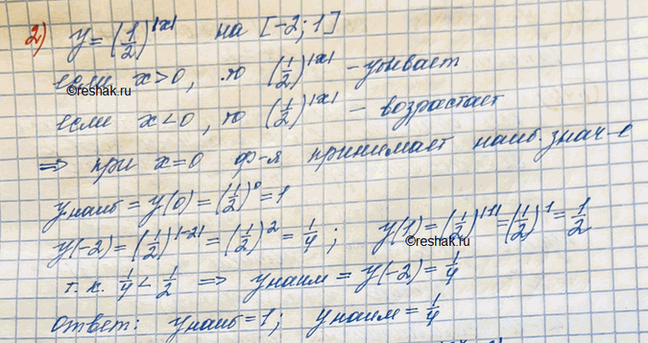 2) y = (1/2)^|x| на [-2; 1]
если x > 0, то (1/2)^|x| - убывает
©reshak.ru
если x < 0, то (1/2)^|x| - возрастает
⇒ при x = 0 ф-я принимает наиб. знач-е
y наиб = y(0) = (1/2)^0 = 1
y(-2) = (1/2)^|-2| = (1/2)^2 = 1/4; y(1) = (1/2)^|1| = (1/2)^1 = 1/2
©reshak.ru
т.к. 1/4 < 1/2 ⇒ y наим = y(-2) = 1/4
ответ: y наиб = 1; y наим = 1/4